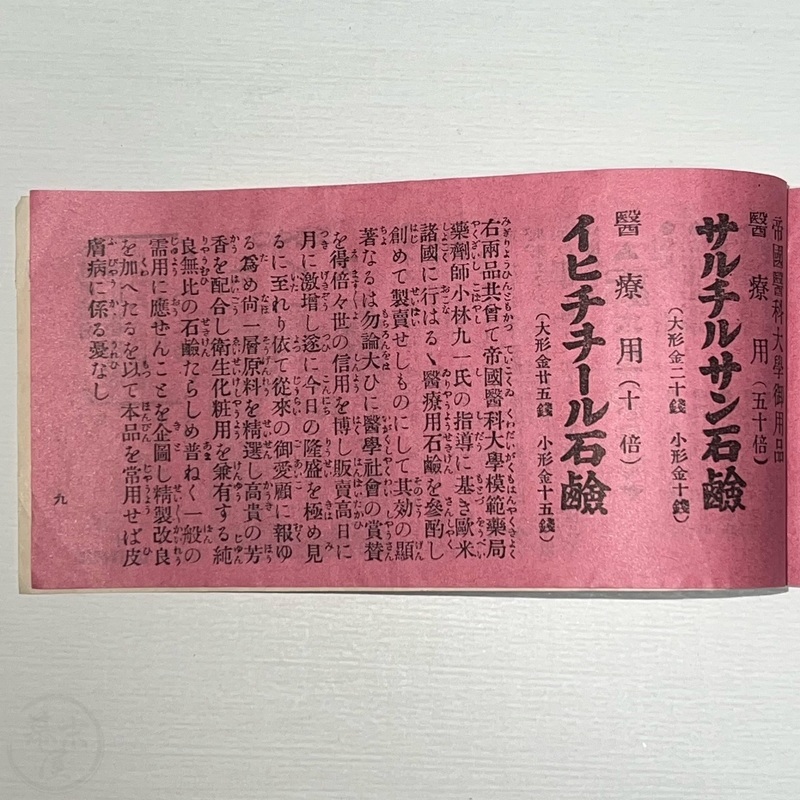 帝國醫科大學御用品
醫療用(五十倍)
サルチルサン石鹼
(大形金二十錢 小形金十五錢)
醫療用(十倍)
イヒチチール石鹼
(大形金廿五錢 小形金十五錢)
右兩品共曾て帝國醫科大學模範藥局
藥劑師小林九一氏の指導に基き歐米
諸國に行はるゝ醫療用石鹼を參酌し
創めて製賣せしものにして其効の顯
著なるは勿論大ひに醫學社會の賞賛
を得倍々世の信用を博し販賣高日に
月に激增し遂に今日の隆盛を極め見
るに至れり依て從來の御愛顧に報ゆ
る爲め尚一層原料を精選し高貴の芳
香を配合し衛生化粧用を兼有する純
良無比の石鹼たらしめ普ねく一般の
需用に應せんことを企圖し精製改良
を加へたるを以て本品を常用せば皮
膚病に係る憂なし
九